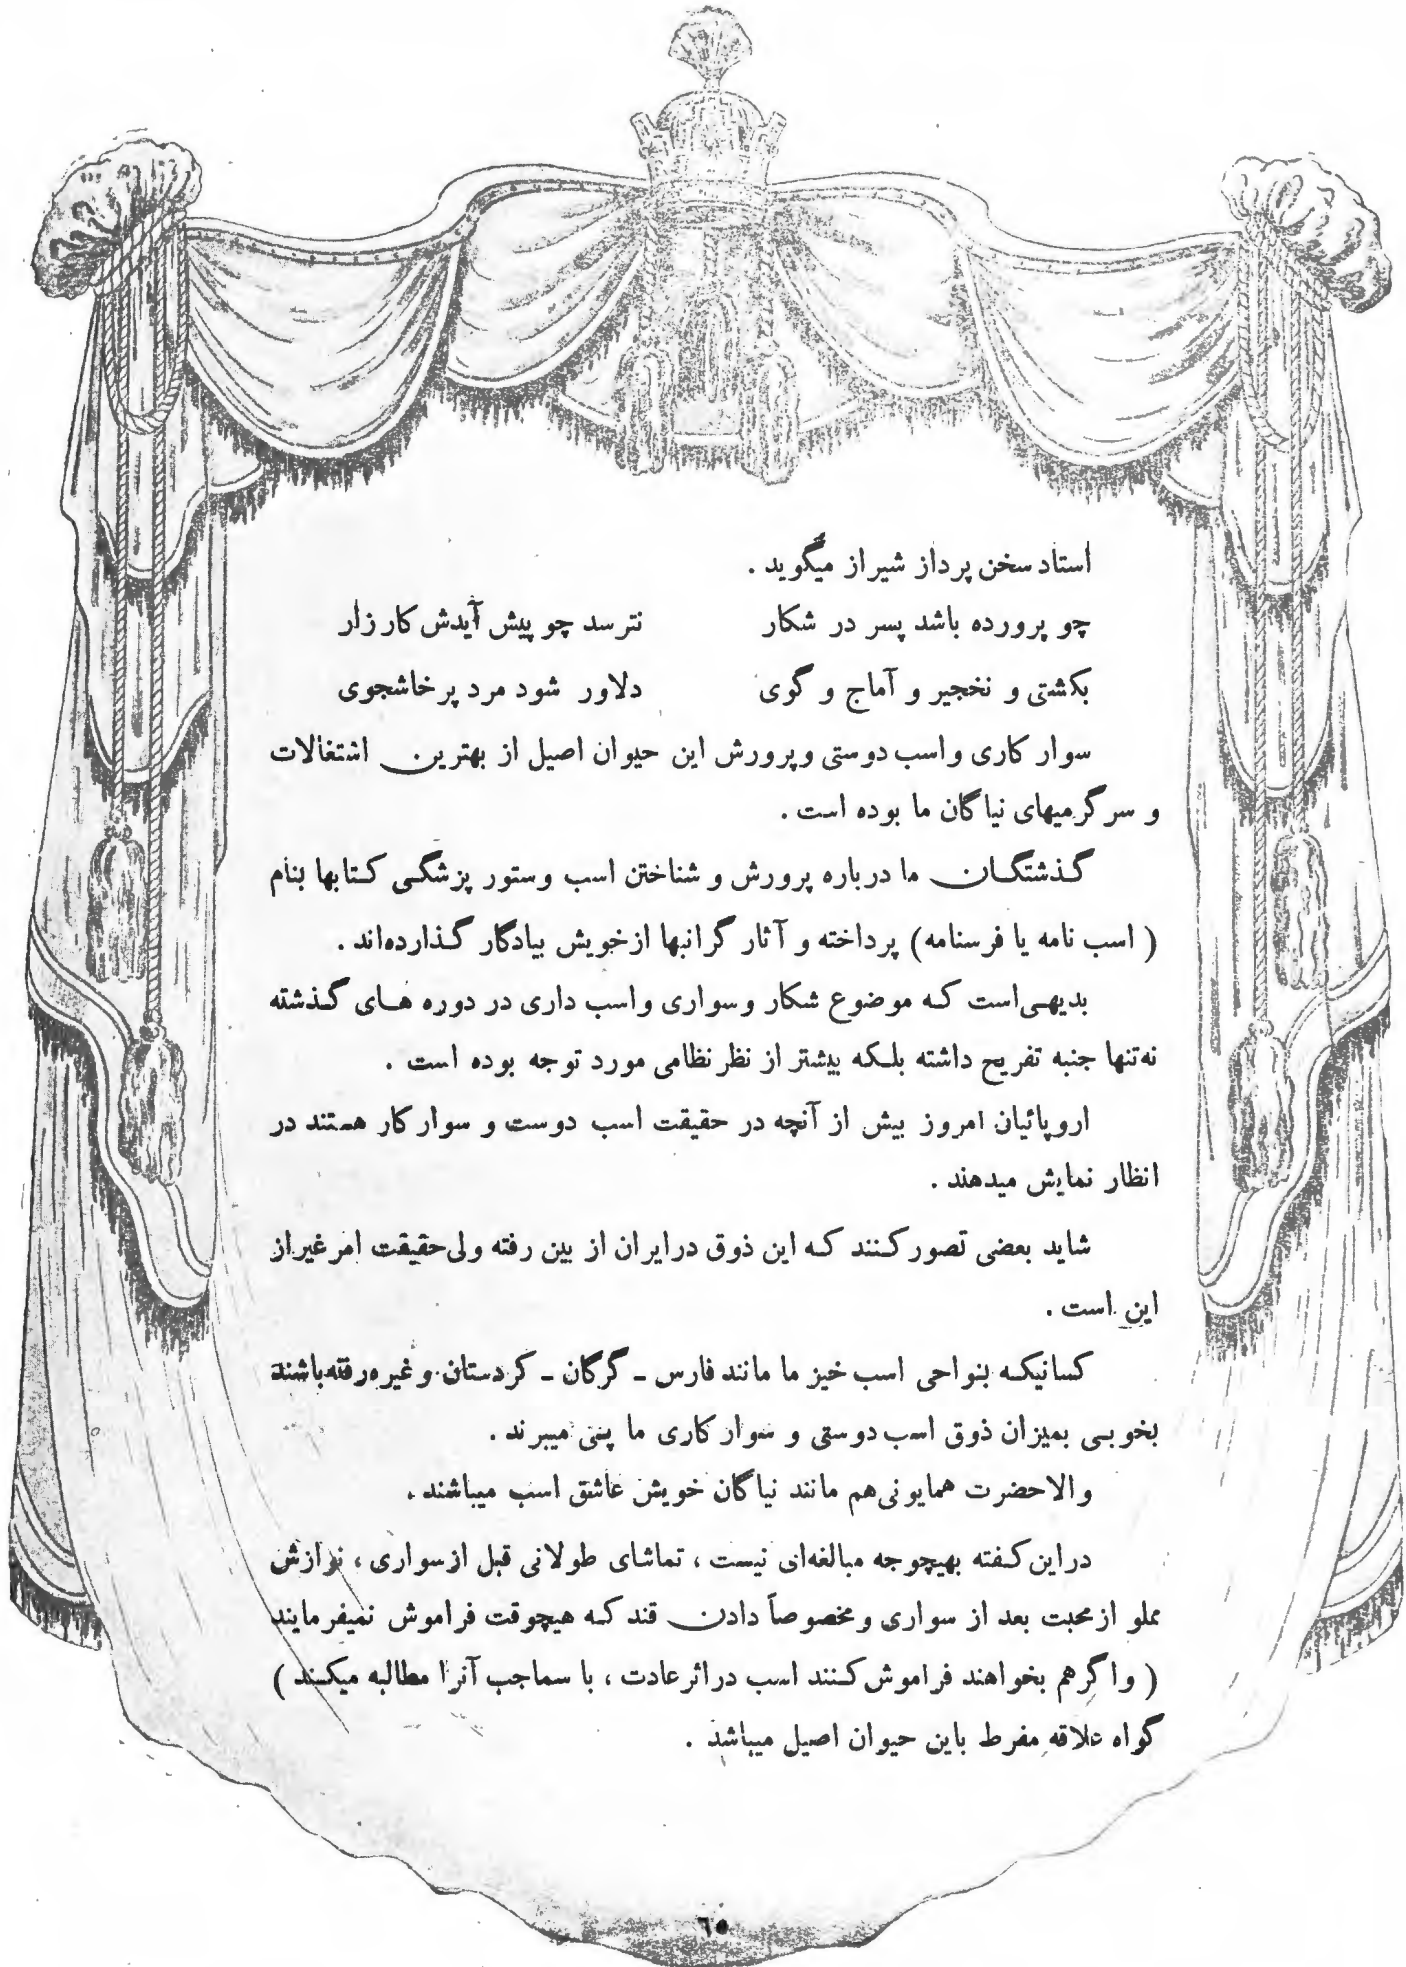 استاد سخن پرداز شیراز میگوید .
چو پرورده باشد پسر در شکار نترسد چو پیش آیدش کار زار
بکشتی و نخجیر و آماج و گوی دلاور شود مرد پرخاشجوی
سوار کاری و اسب دوستی و پرورش این حیوان اصیل از بهترین اشتغالات
و سرگرمیهای نیاگان ما بوده است .
گذشتگان ما درباره پرورش و شناختن اسب و ستور پزشگی کتابها بنام
( اسب نامه یا فرسنامه) پرداخته و آثار گرانبها از خویش بیادگار گذارده‌اند .
بدیهی‌است که موضوع شکار و سواری و اسب داری در دوره های گذشته
نه‌تنها جنبه تفریح داشته بلکه بیشتر از نظر نظامی مورد توجه بوده است .
اروپائیان امروز بیش از آنچه در حقیقت اسب دوست و سوار کار هستند در
انظار نمایش میدهند .
شاید بعضی تصور کنند که این ذوق در ایران از بین رفته ولی حقیقت امر غیر از
این است .
کسانیکه بنواحی اسب خیز ما مانند فارس ـ گرگان ـ کردستان و غیره رفته باشند
بخوبی بمیزان ذوق اسب دوستی و سوار کاری ما پی میبرند .
والاحضرت همایونی هم مانند نیاگان خویش عاشق اسب میباشند .
در این گفته بهیچوجه مبالغه‌ای نیست ، تماشای طولانی قبل از سواری ، نوازش
مملو از محبت بعد از سواری و مخصوصاً دادن قند که هیچوقت فراموش نمیفرمایند
( و اگر هم بخواهند فراموش کنند اسب در اثر عادت ، با سماجب آنرا مطالبه میکند )
گواه علاقه مفرط باین حیوان اصیل میباشد .
٦٥